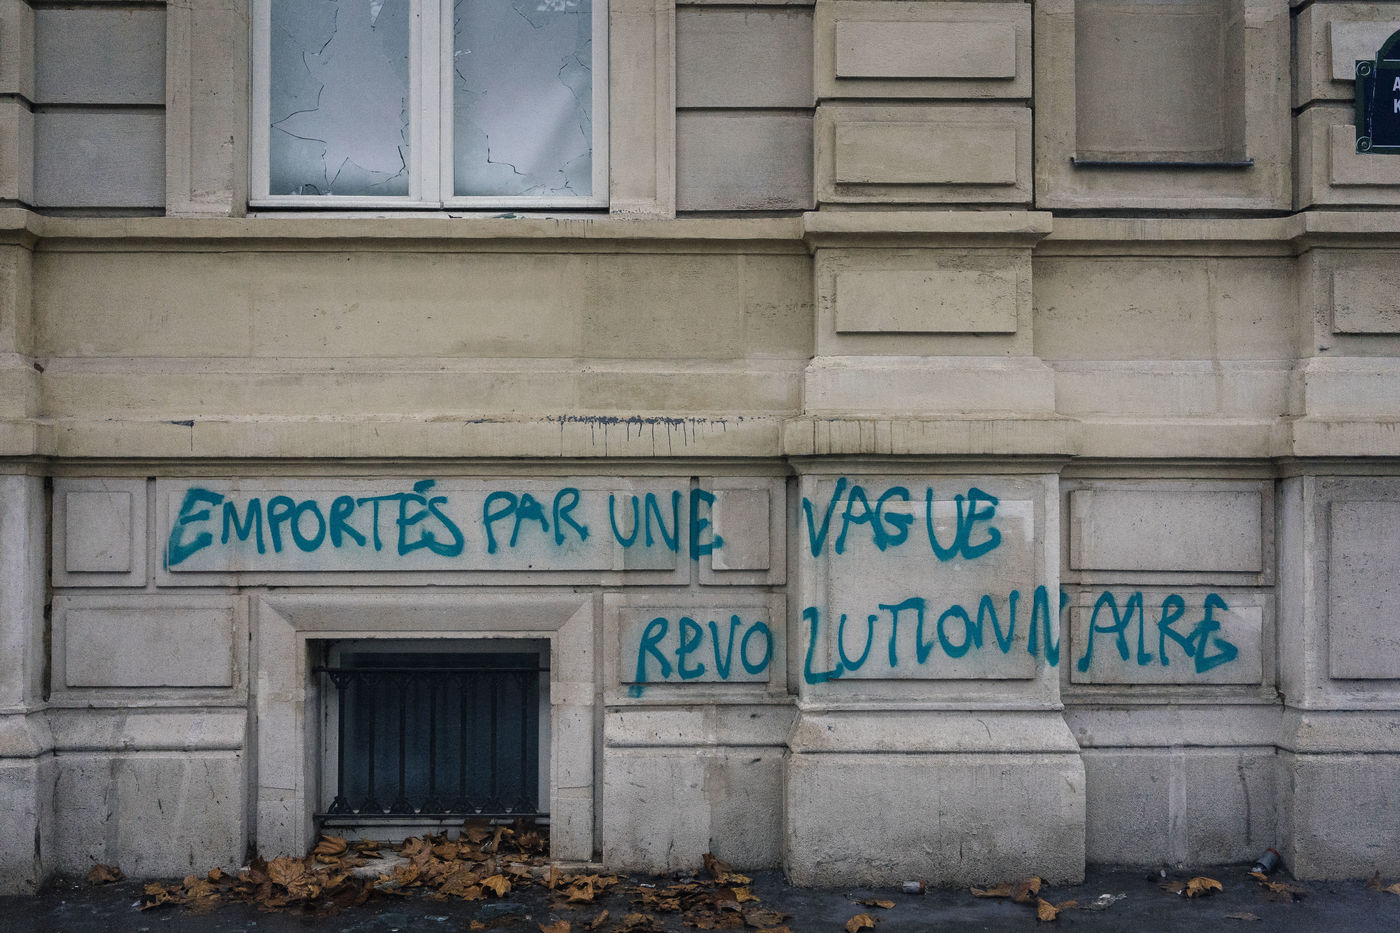 EMPORTÉS PAR UNE VAGUE
REVOLUTIONNAIRE